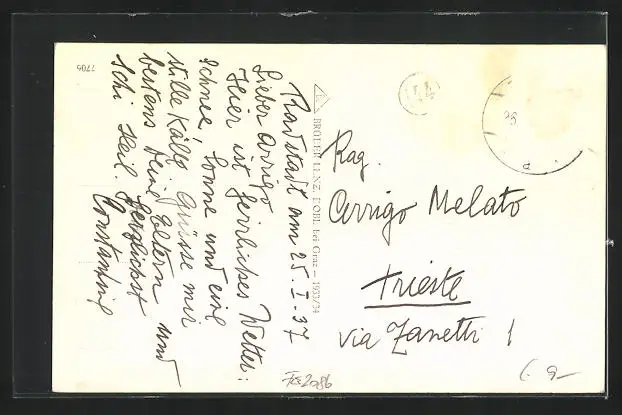 Radstadt am 25. I. 37
Lieber Arrigo
Hier ist herrliches Wetter:
Schnee, Sonne und eine
stille Kälte. Grüsse mir
bestens Deine Eltern und
Schi Heil. Herzlichst
Constantin
BRÜDER LENZ, DOBL bei Graz – 1933/34
7706
14
Rag.
Arrigo Melato
Trieste
via Zanetti 1
Fs2086
6.9-